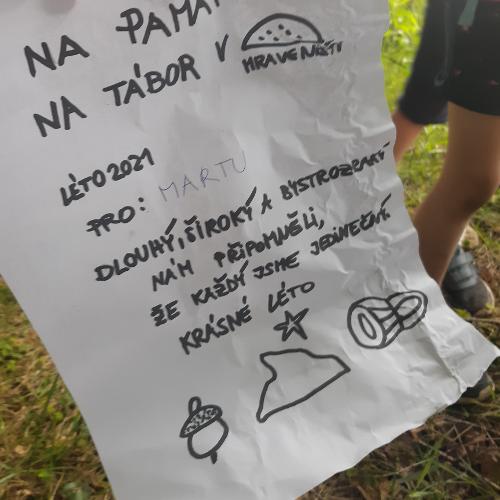 NA PAMÁT
NA TÁBOR V
MRAVENIŠTI
LÉTO 2021
PRO: MARTU
DLOUHÝ, ŠIROKÝ A BYSTROZRAKÝ
NÁM PŘIPOMNĚLI,
ŽE KAŽDÝ JSME JEDINEČNÝ.
KRÁSNÉ LÉTO